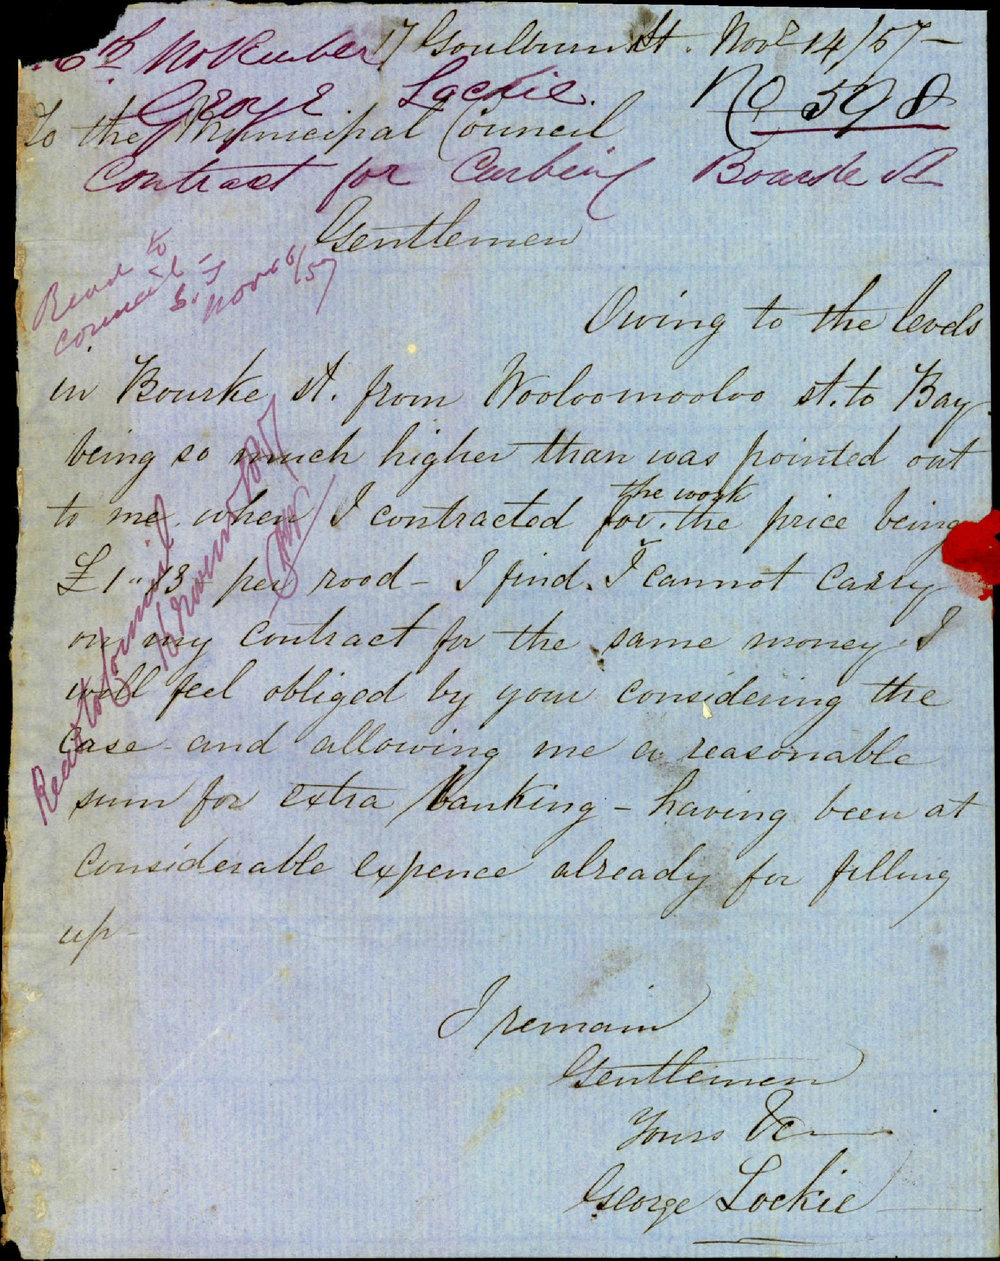 17 Goulburn St. Novr 14/57 -
16th November
George Lackie. No 598
To the Municipal Council
Contract for Curbing Bourke St
Gentlemen
Read to
Council
Nov 16/57
Owing to the levels
in Bourke st. from Wooloomooloo st. to Bay
being so much higher than was pointed out
the work
to me when I contracted for. the price being
£1"13 per rood - I find I cannot carry
on my contract for the same money. I
will feel obliged by your considering the
case - and allowing me a reasonable
sum for extra banking - having been at
considerable expence already for filling
up -
Read to Council
16 Novemr 1857
I remain
Gentlemen
Yours &c
George Lockie